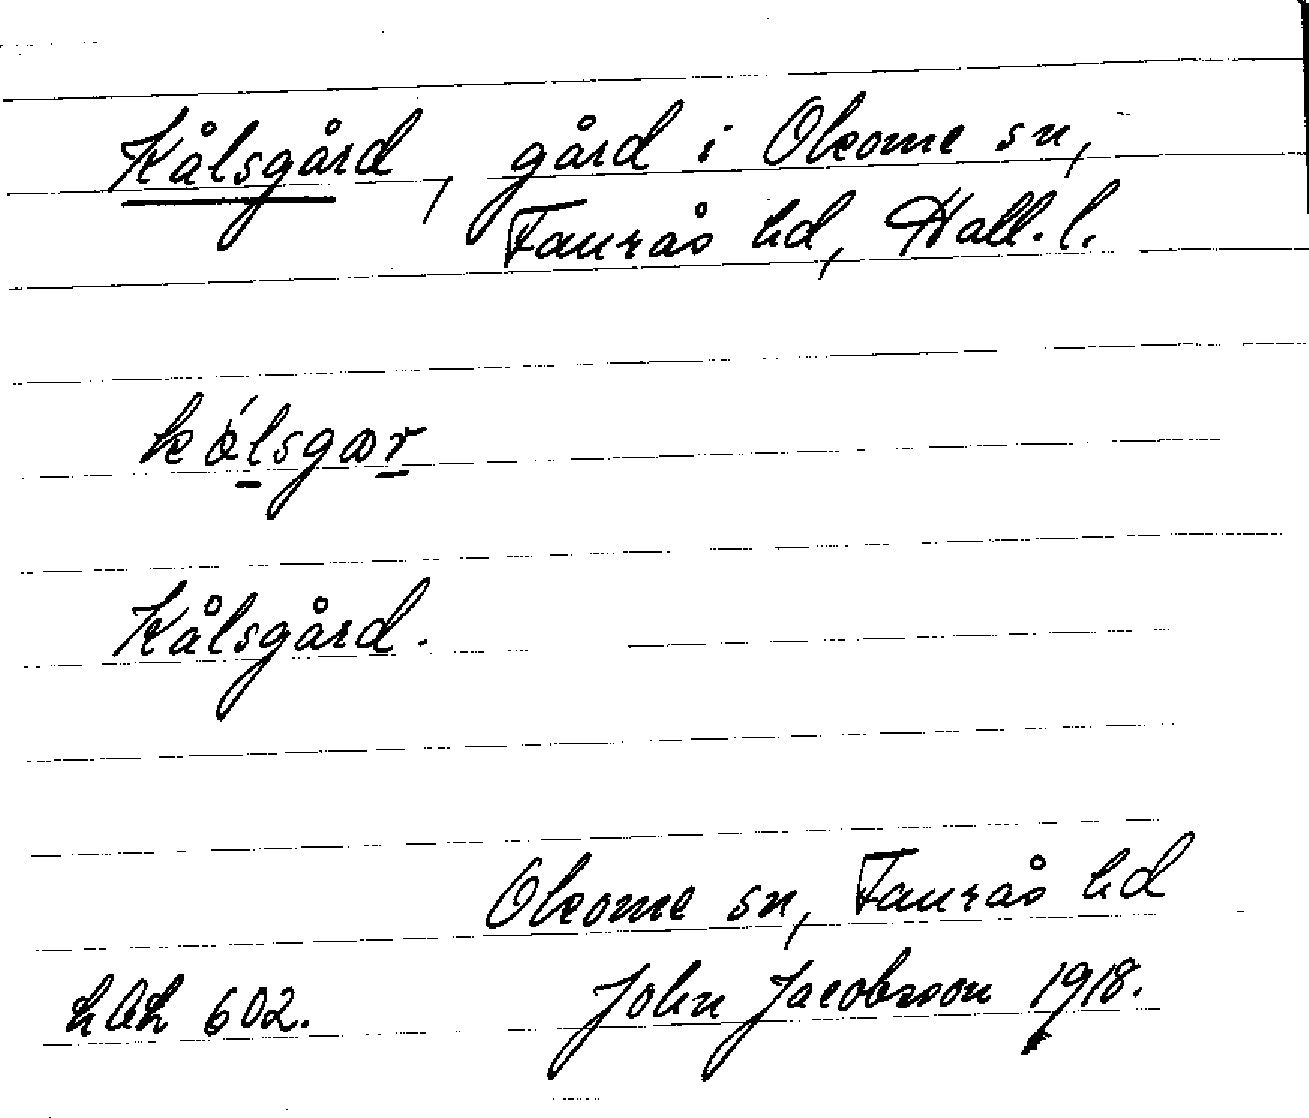 Kålsgård, gård i Okome sn,
Faurås hd, Hall. l.
Kålsgård.
Okome sn, Faurås hd
602. John Jacobsson 1918.